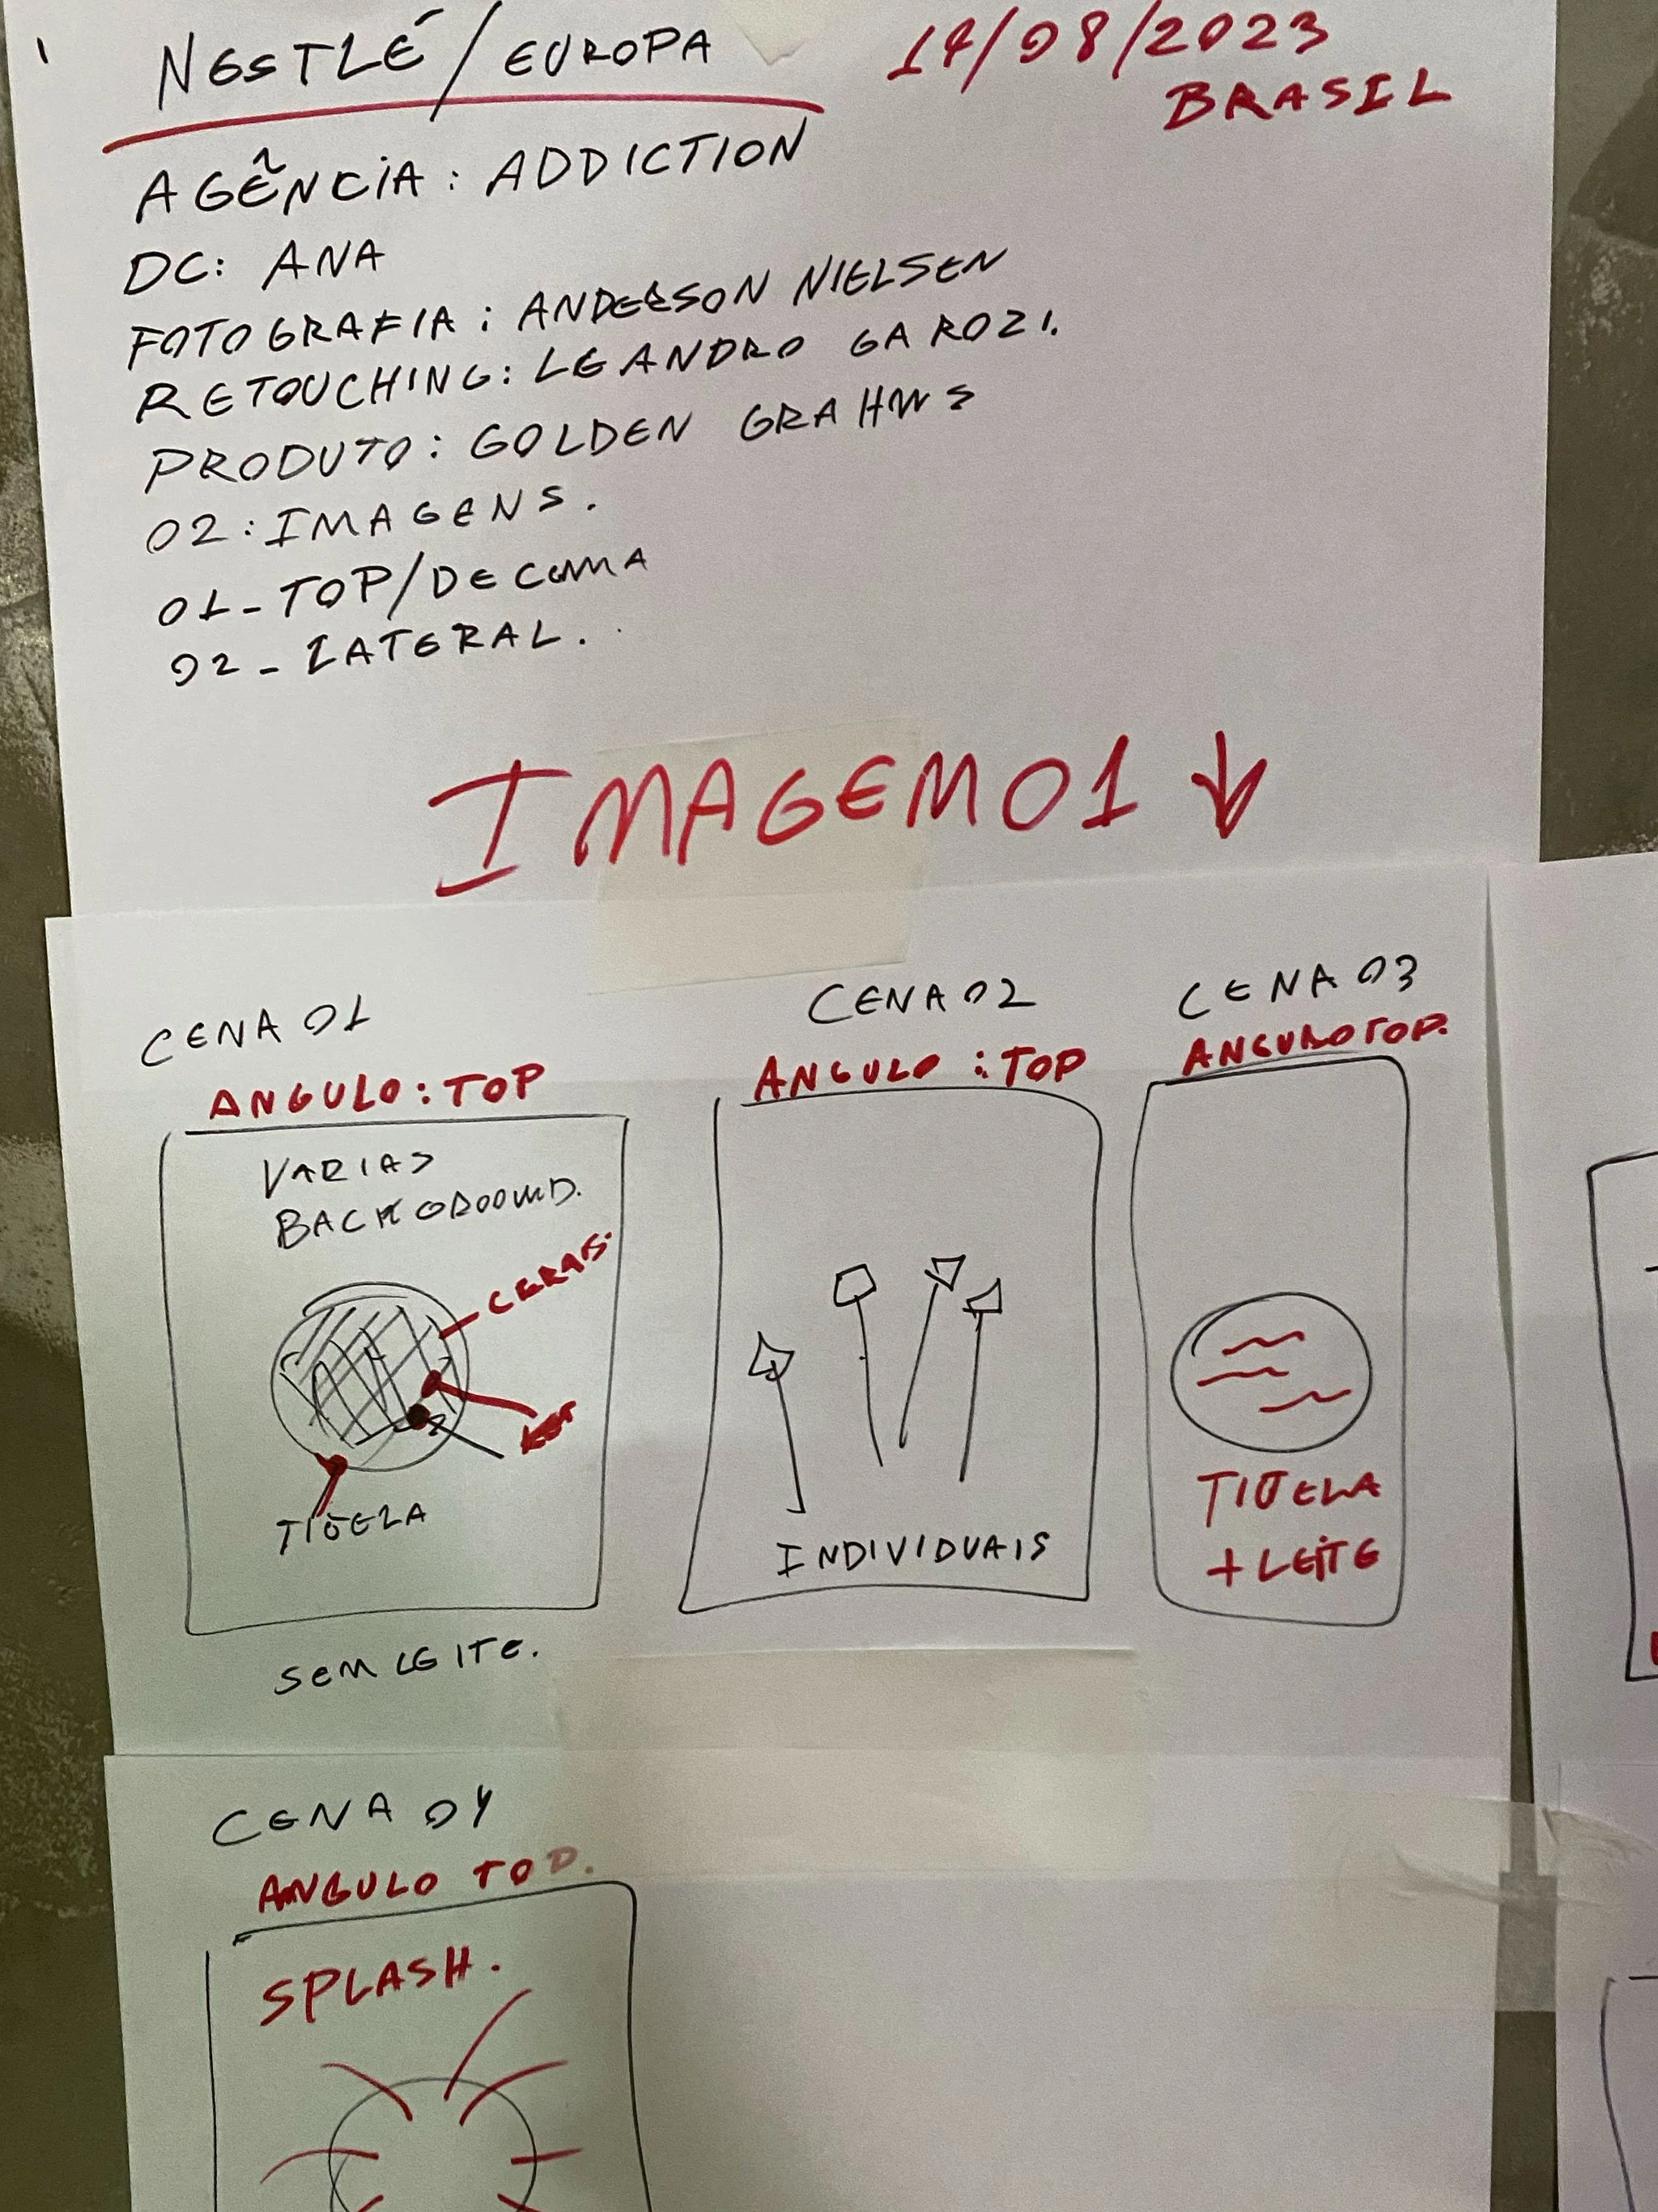 NESTLÉ/EUROPA
14/08/2023
BRASIL
AGÊNCIA: ADDICTION
DC: ANA
FOTOGRAFIA: ANDERSON NIELSEN
RETOUCHING: LEANDRO GAROZI.
PRODUTO: GOLDEN GRAHMS
02: IMAGENS.
01_TOP/DE CIMA
02_LATERAL.
IMAGEM 01 ↓
CENA 01
ANGULO: TOP
VARIAS
BACKGROOUND.
TIGELA
SEM LEITE.
CENA 02
ANGULO: TOP
INDIVIDUAIS
CENA 03
ANGULO TOP.
TIGELA
+ LEITE
CENA 04
ANGULO TOP.
SPLASH.